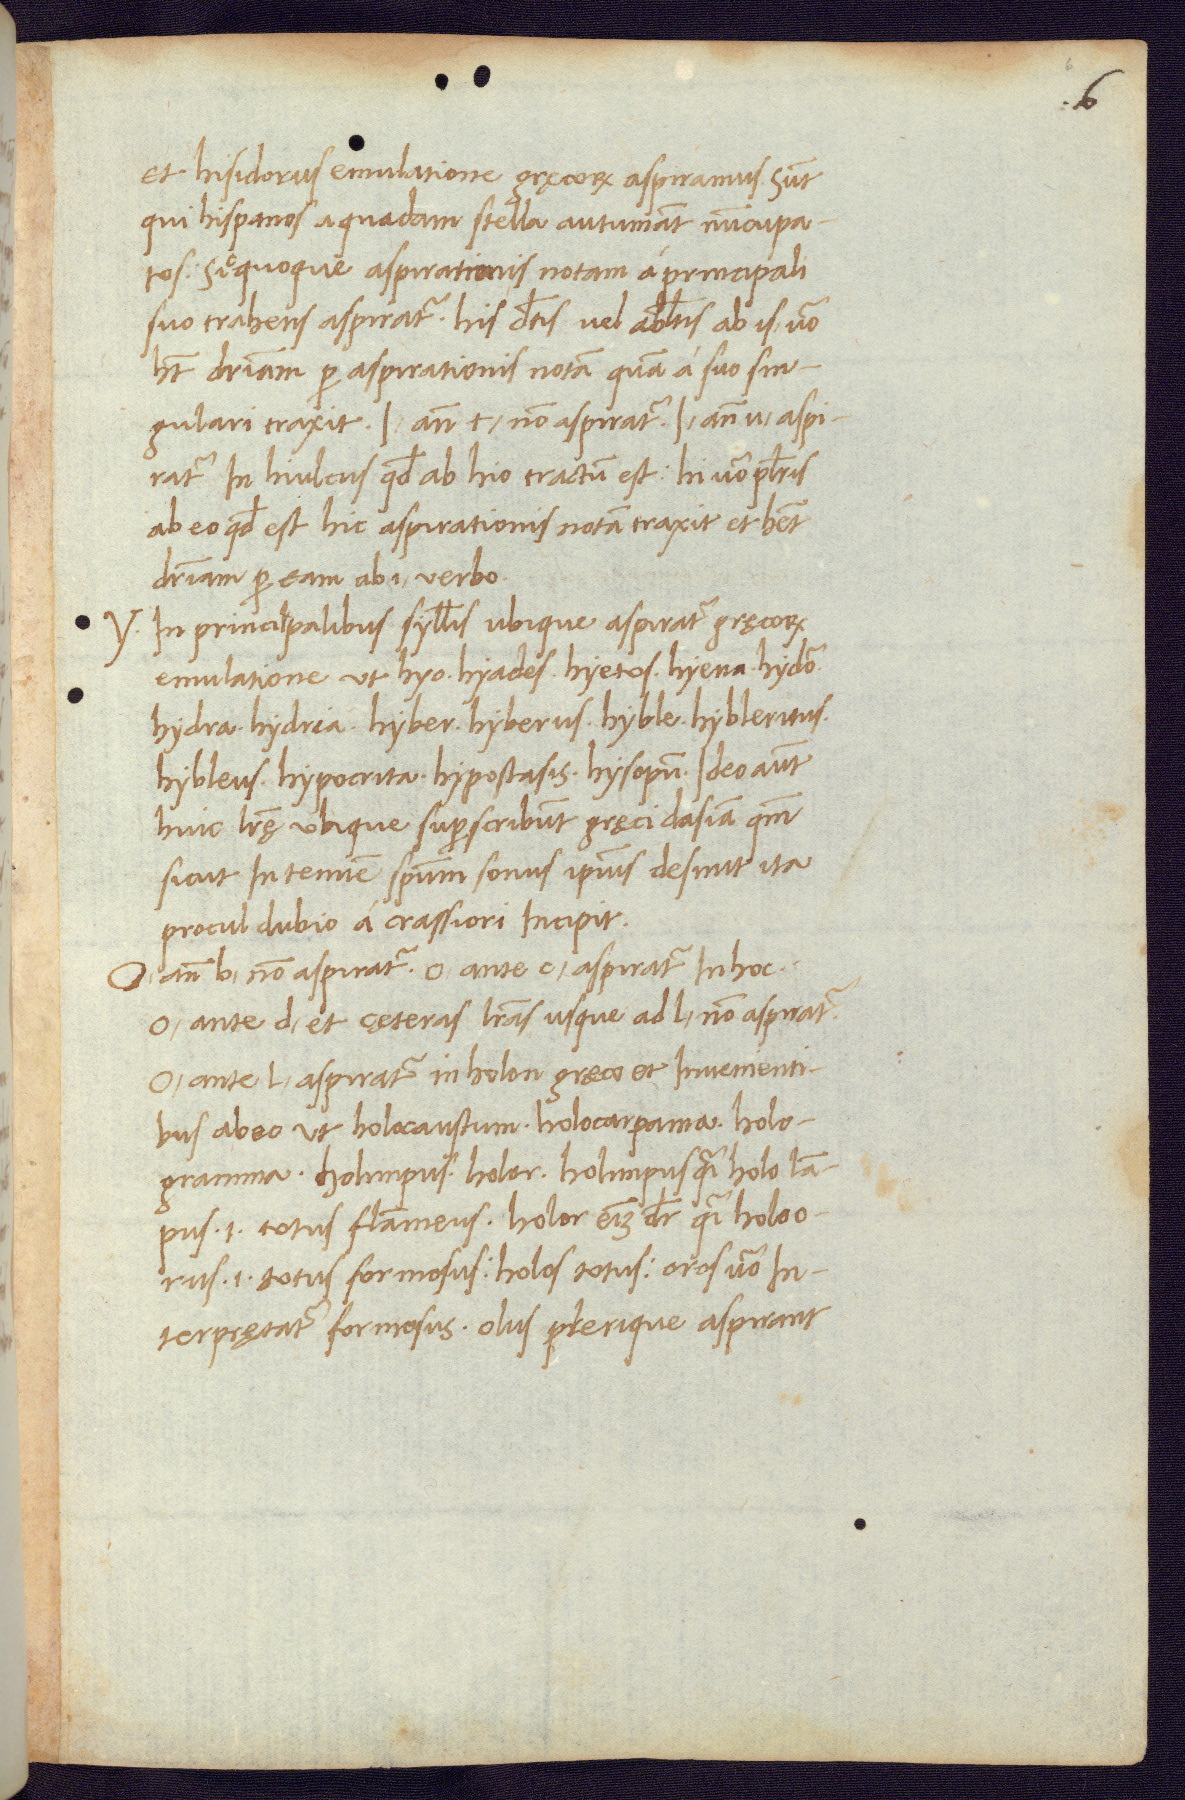 6
.6
et hisidorus emulatione gręcoꝝ aspiramus. Sūt
qui hispanos a quadam stella autumāt nūcupa-
tos. Sic quoque aspirationis notam á principali
suo trahens aspirat᷑. his dt̄is uel abl̄tis ab is, uō
hn̄t driām ꝑ aspirationis notā quā á suo sin-
gulari traxit. I, ān t, nō aspirat᷑. I, ān u, aspi-
rat᷑ In hiulcus qd̄ ab hio tractū est: hi uō pl̄ris
ab eo qd̄ est hic aspirationis notā traxit et hēt
driām ꝑ eam ab i, verbo.
Y. In principalibus syll̄is ubique aspirat᷑ gręcoꝝ
emulatione ut hyo. hyades. hyetos. hyena. hydō.
hydra. hydria. hyber. hyberus. hyble. hybleritus.
hybleus. hypocrita. hypostasis. hysopū. Ideo aūt
huic lr̄ę ubique suꝑscribūt gręci dasiā qm̄
sicut In tenuē spūm sonus ip̄ius desinit ita
procul dubio á crassiori Incipit.
O, ān b, nō aspirat᷑. o, ante c, aspirat᷑ In hoc.
o, ante d, et cęteras lr̄as usque ad l, nō aspirat᷑.
O, ante l, aspirat᷑ in holon gręco et Inuenienti-
bus ab eo ut holocaustum. holocarpama. holo-
gramma. holimpus. holor. holimpus qi᷑ holo lā-
pus. i. totus flāmeus. holor eīꝫ dr̄ qi᷑ holoo-
rus. i. totus formosus: holos totus: oros uō In-
terprętat᷑ formosus. olus plerique aspirant